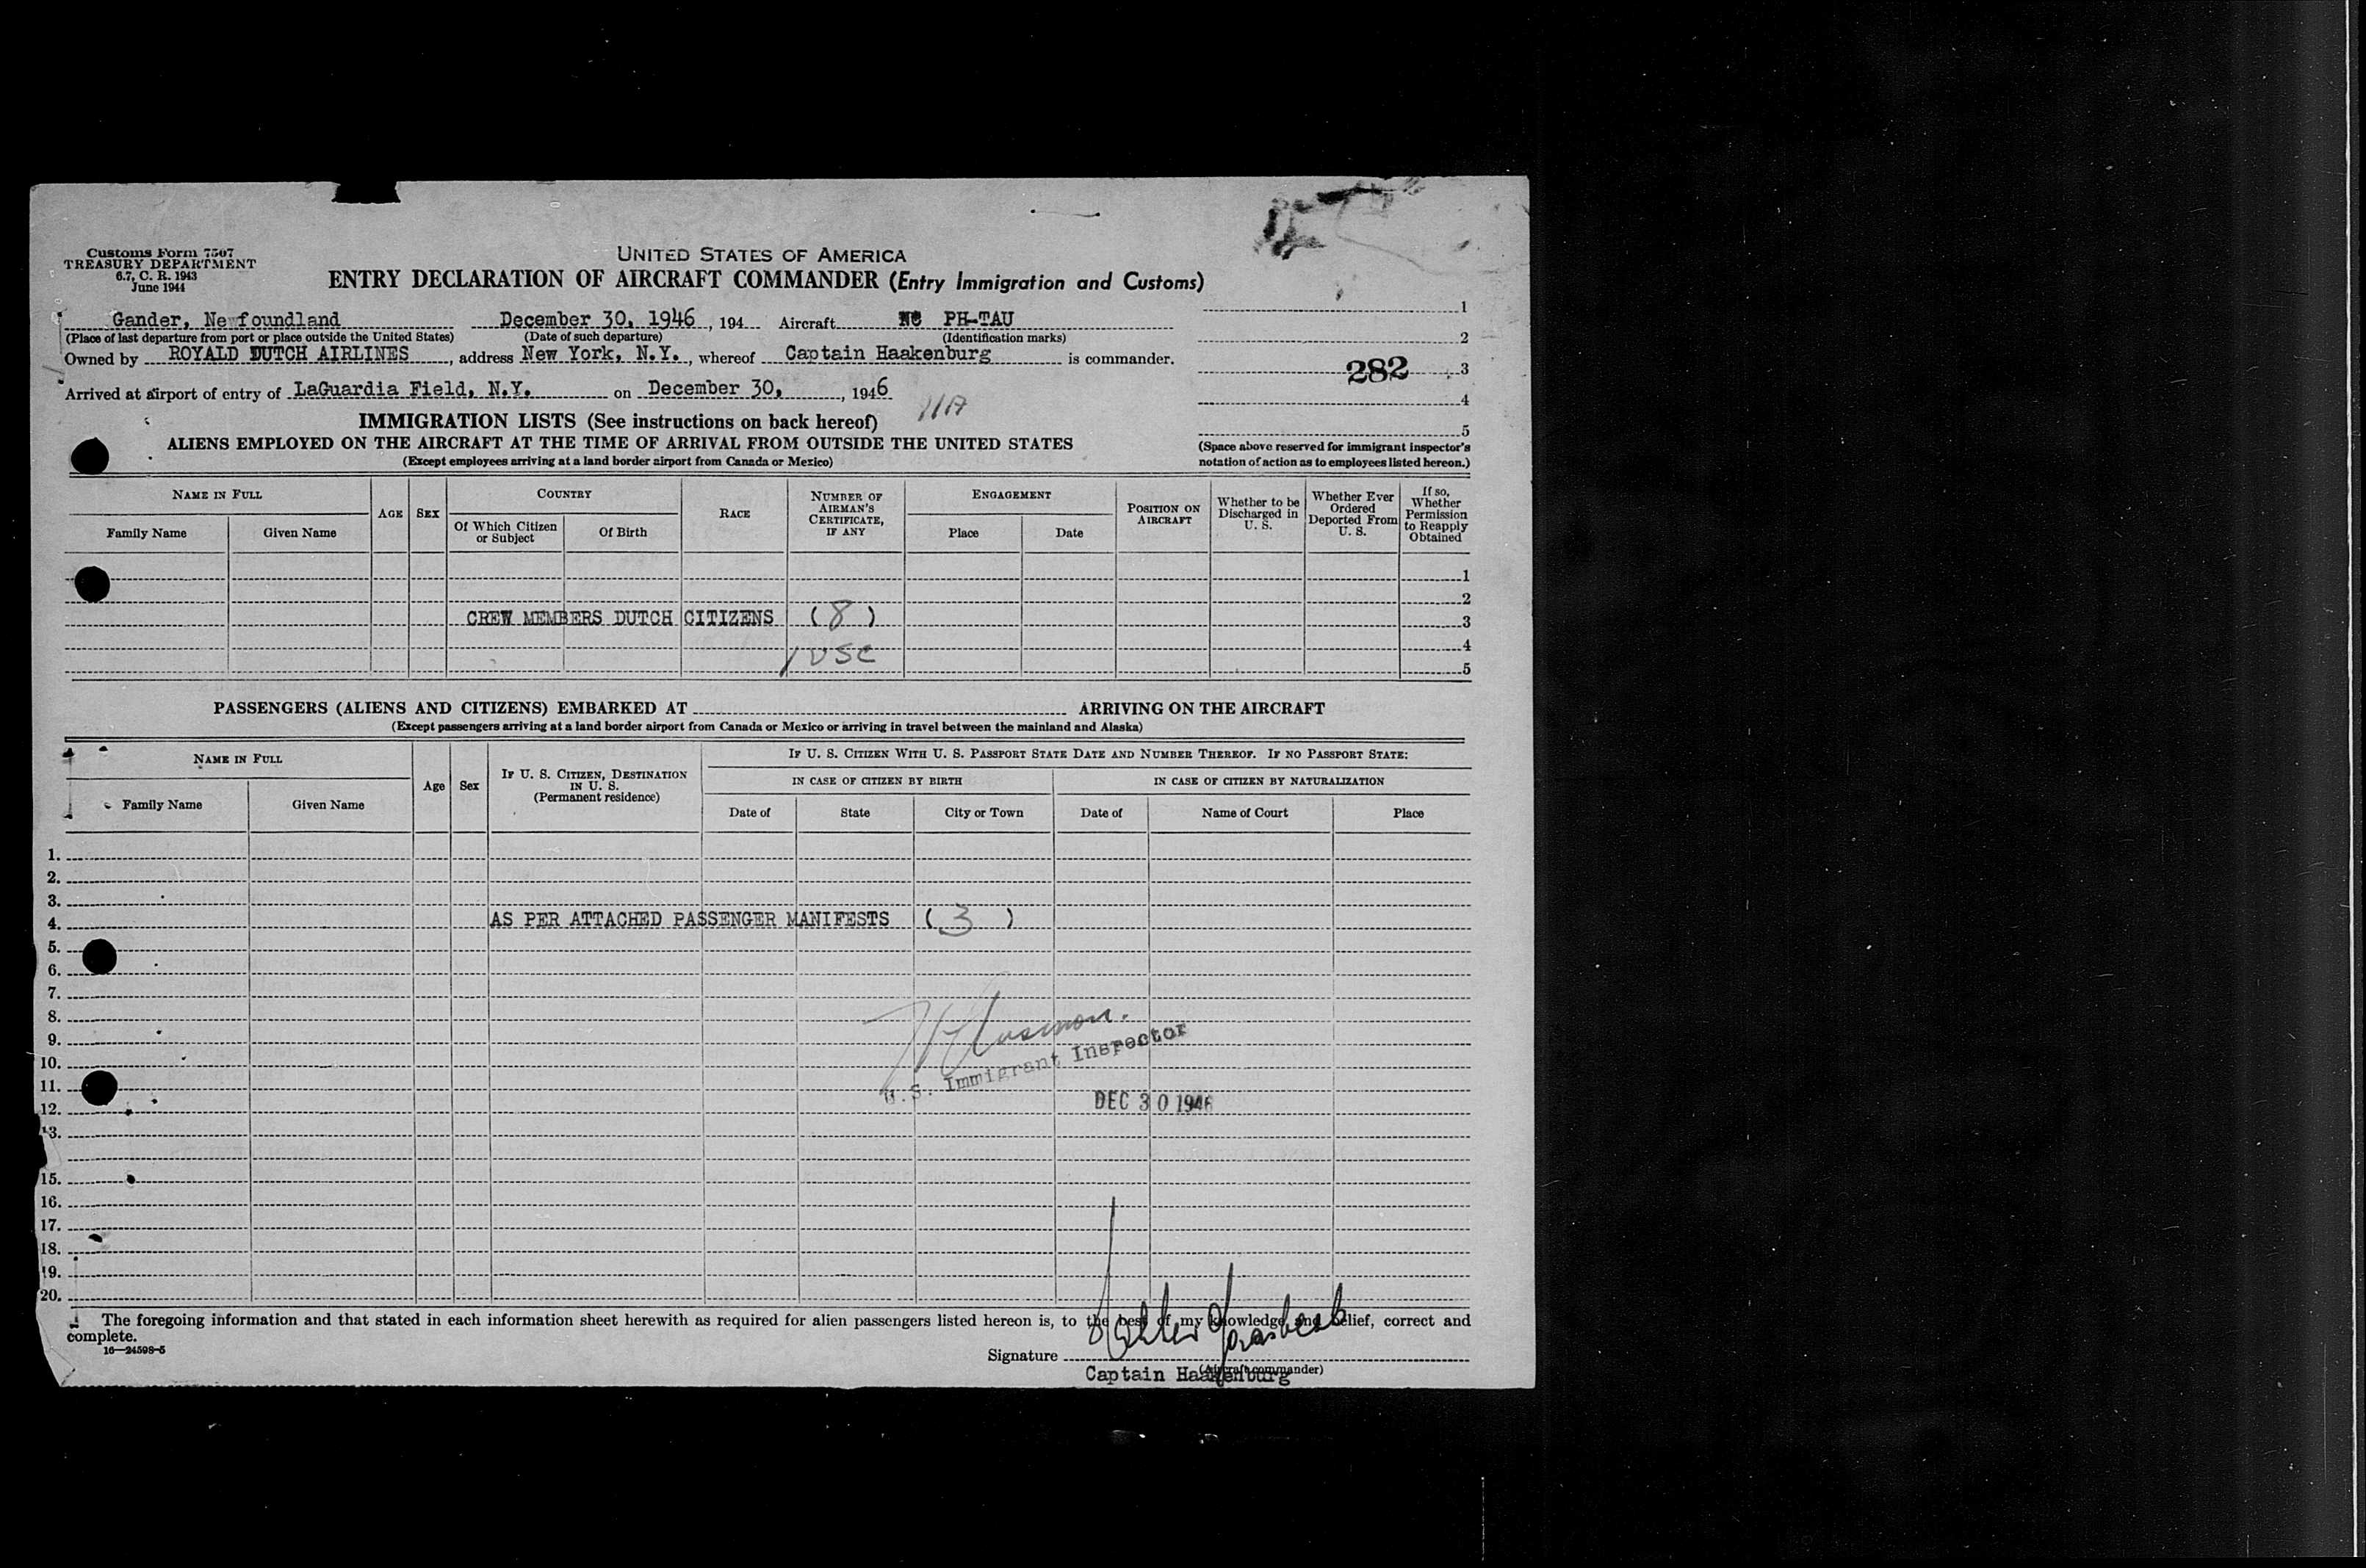 Customs Form 7507
TREASURY DEPARTMENT
6.7, C. R. 1943
June 1944
UNITED STATES OF AMERICA
ENTRY DECLARATION OF AIRCRAFT COMMANDER (Entry Immigration and Customs)
Gander, Newfoundland December 30, 1946, 194 Aircraft NC PH-TAU
(Place of last departure from port or place outside the United States) (Date of such departure) (Identification marks)
Owned by ROYALD DUTCH AIRLINES, address New York, N.Y., whereof Captain Haakenburg is commander.
Arrived at airport of entry of LaGuardia Field, N.Y. on December 30, 1946
1
2
282 3
4
5
(Space above reserved for immigrant inspector's
notation of action as to employees listed hereon.)
IMMIGRATION LISTS (See instructions on back hereof)
ALIENS EMPLOYED ON THE AIRCRAFT AT THE TIME OF ARRIVAL FROM OUTSIDE THE UNITED STATES
(Except employees arriving at a land border airport from Canada or Mexico)
NAME IN FULL
Family Name Given Name
AGE SEX
COUNTRY
Of Which Citizen or Subject Of Birth
RACE
NUMBER OF AIRMAN'S CERTIFICATE, IF ANY
ENGAGEMENT
Place Date
POSITION ON AIRCRAFT
Whether to be Discharged in U. S.
Whether Ever Ordered Deported From U. S.
If so, Whether Permission to Reapply Obtained
1
2
CREW MEMBERS DUTCH CITIZENS (8) 3
4
1 USC 5
PASSENGERS (ALIENS AND CITIZENS) EMBARKED AT ARRIVING ON THE AIRCRAFT
(Except passengers arriving at a land border airport from Canada or Mexico or arriving in travel between the mainland and Alaska)
NAME IN FULL
Family Name Given Name
Age Sex
IF U. S. CITIZEN, DESTINATION IN U. S.
(Permanent residence)
IF U. S. CITIZEN WITH U. S. PASSPORT STATE DATE AND NUMBER THEREOF. IF NO PASSPORT STATE:
IN CASE OF CITIZEN BY BIRTH IN CASE OF CITIZEN BY NATURALIZATION
Date of State City or Town Date of Name of Court Place
1.
2.
3.
4. AS PER ATTACHED PASSENGER MANIFESTS (3)
5.
6.
7.
8.
9.
10.
11.
U.S. Immigrant Inspector
12. DEC 30 1946
13.
15.
16.
17.
18.
19.
20.
The foregoing information and that stated in each information sheet herewith as required for alien passengers listed hereon is, to the best of my knowledge and belief, correct and
complete.
16—24598-5
Signature
(Aircraft commander)
Captain Haakenburg